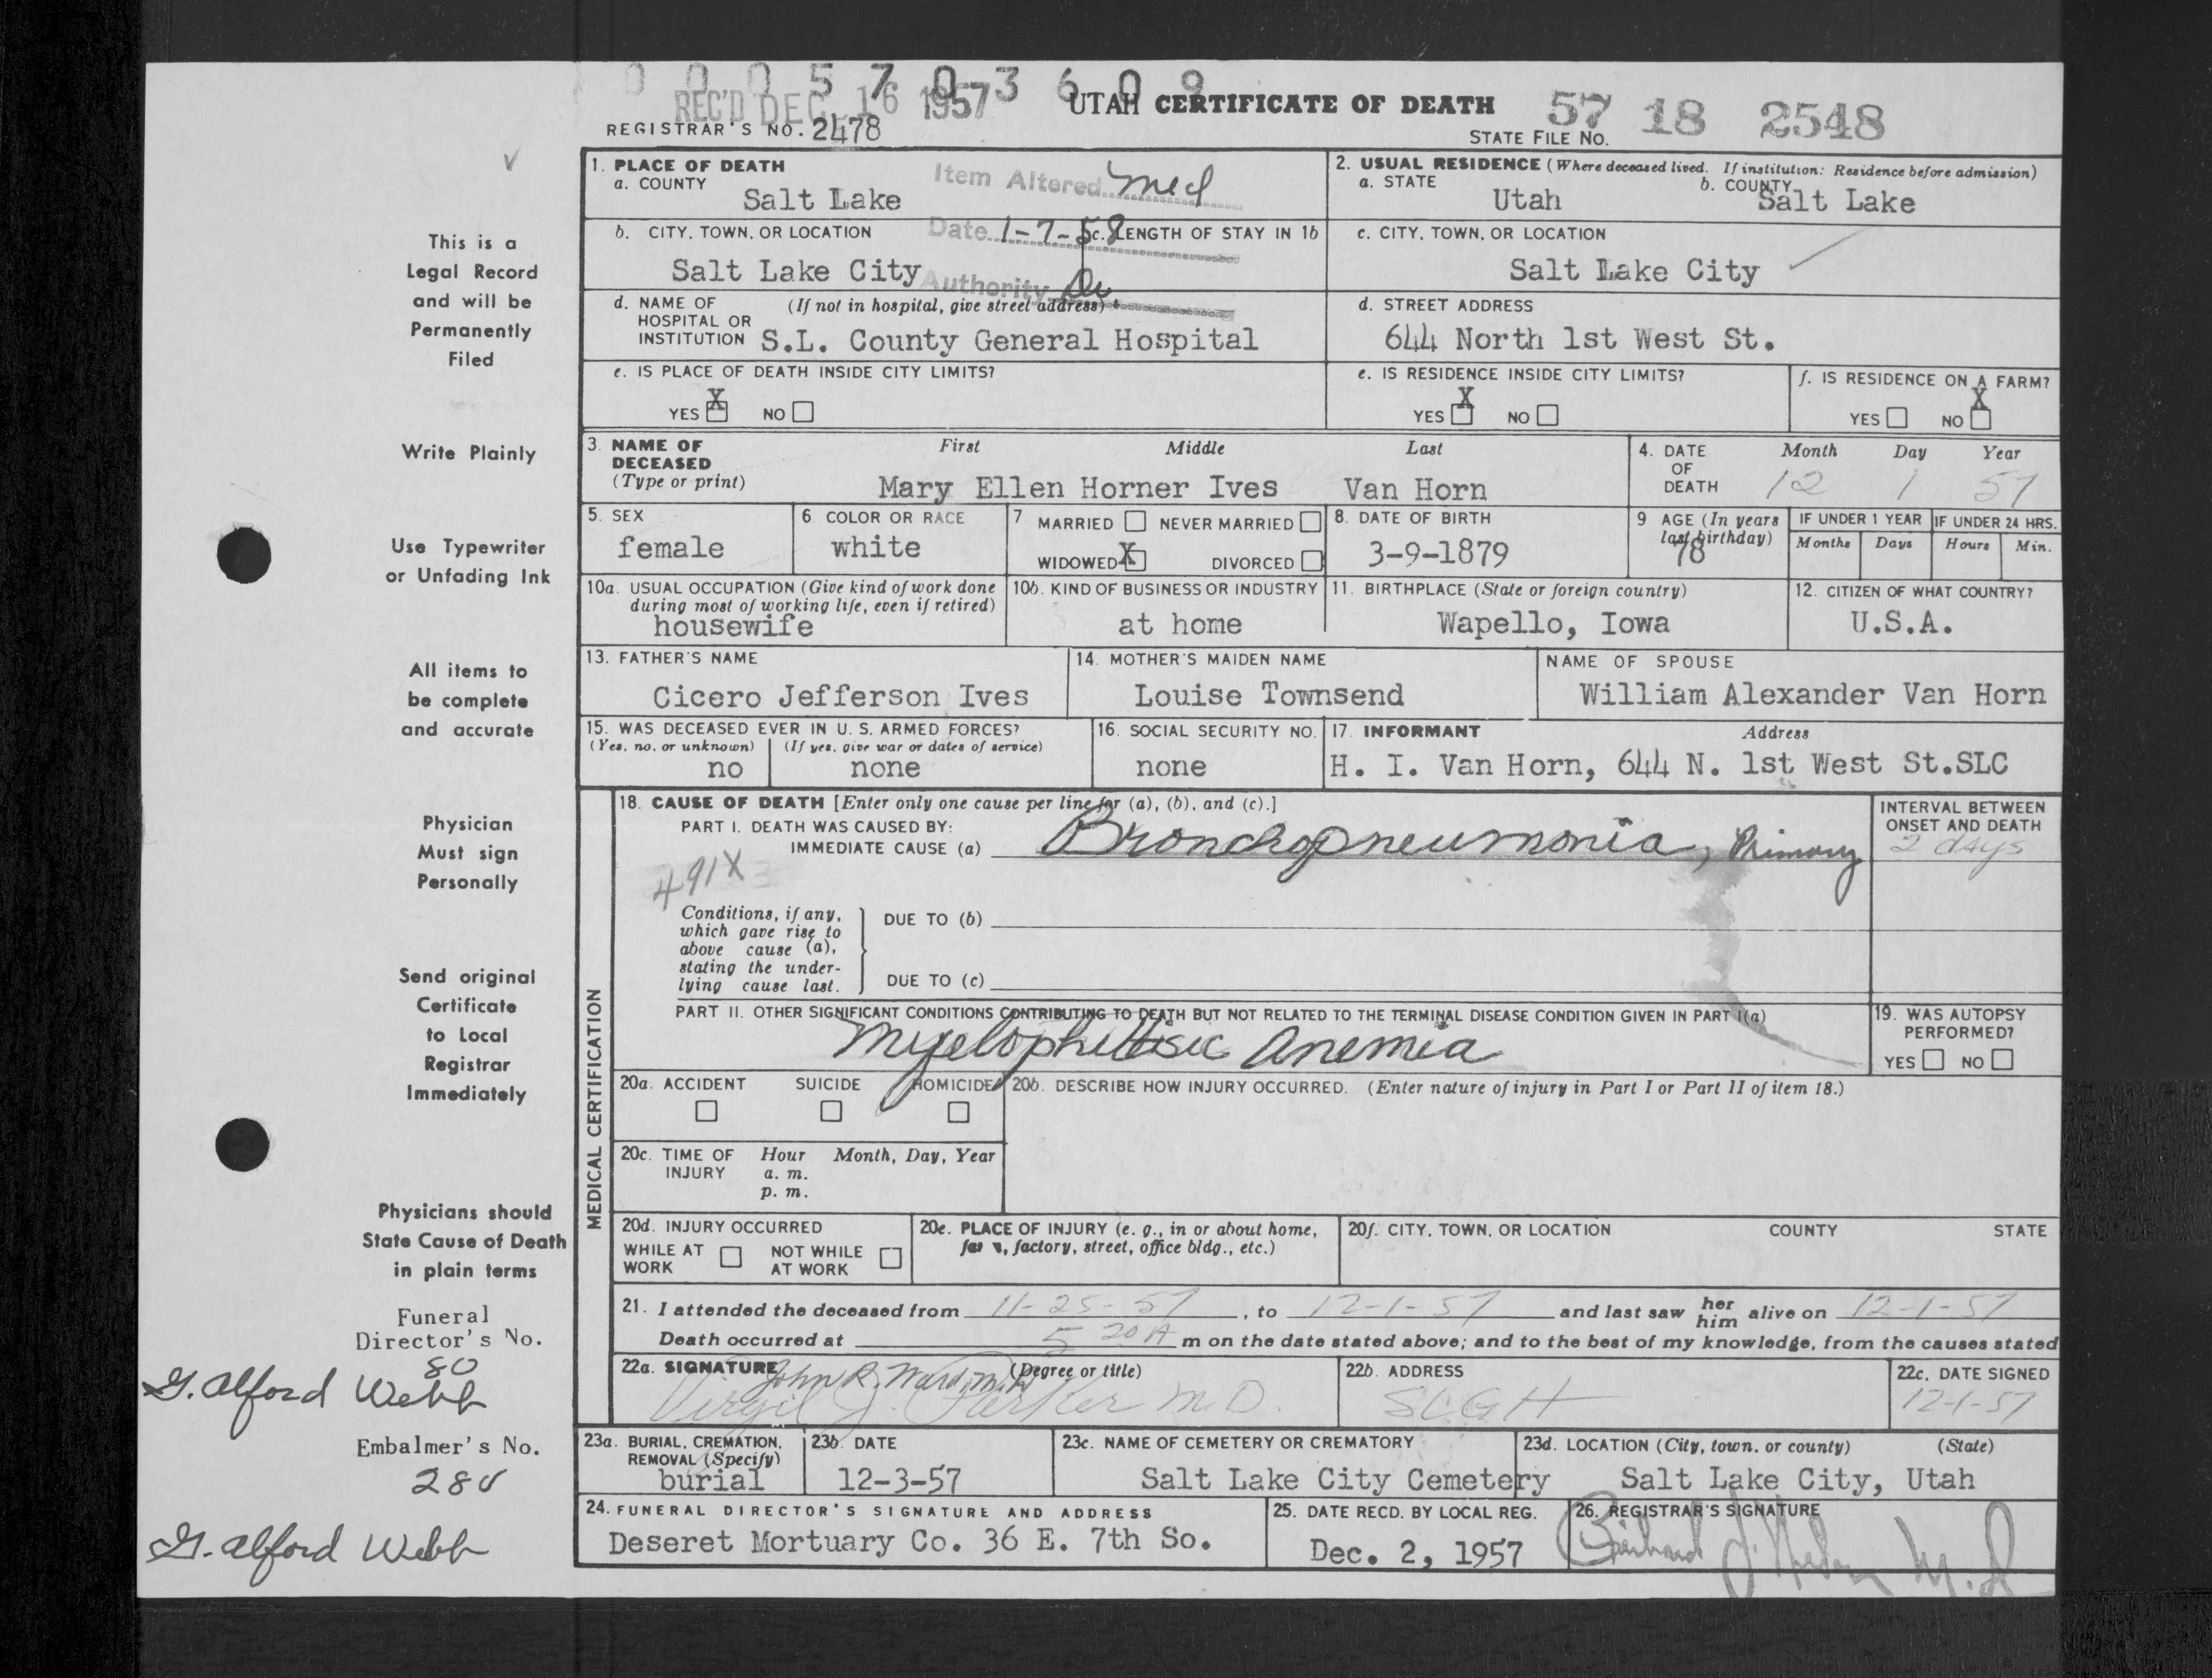 0 0 0 5 7 0 3 6 0 9
REC'D DEC 16 1957
UTAH CERTIFICATE OF DEATH
57 18 2548
REGISTRAR'S NO. 2478
STATE FILE NO.
This is a
Legal Record
and will be
Permanently
Filed
Write Plainly
Use Typewriter
or Unfading Ink
All items to
be complete
and accurate
Physician
Must sign
Personally
Send original
Certificate
to Local
Registrar
Immediately
Physicians should
State Cause of Death
in plain terms
Funeral
Director's No.
80
G. Alford Webb
Embalmer's No.
280
G. Alford Webb
1. PLACE OF DEATH
a. COUNTY
Salt Lake
Item Altered Med
Date 1-7-58
Authority
2. USUAL RESIDENCE (Where deceased lived. If institution: Residence before admission)
a. STATE
Utah
b. COUNTY
Salt Lake
b. CITY, TOWN, OR LOCATION
Salt Lake City
c. LENGTH OF STAY IN 1b
c. CITY, TOWN, OR LOCATION
Salt Lake City
d. NAME OF (If not in hospital, give street address)
HOSPITAL OR
INSTITUTION S.L. County General Hospital
d. STREET ADDRESS
644 North 1st West St.
e. IS PLACE OF DEATH INSIDE CITY LIMITS?
YES X NO
e. IS RESIDENCE INSIDE CITY LIMITS?
YES X NO
f. IS RESIDENCE ON A FARM?
YES NO X
3. NAME OF DECEASED
(Type or print)
First Middle Last
Mary Ellen Horner Ives Van Horn
4. DATE OF DEATH
Month Day Year
12 1 57
5. SEX
female
6 COLOR OR RACE
white
7 MARRIED NEVER MARRIED
WIDOWED X DIVORCED
8. DATE OF BIRTH
3-9-1879
9 AGE (In years
last birthday)
78
IF UNDER 1 YEAR
Months Days
IF UNDER 24 HRS.
Hours Min.
10a. USUAL OCCUPATION (Give kind of work done
during most of working life, even if retired)
housewife
10b. KIND OF BUSINESS OR INDUSTRY
at home
11. BIRTHPLACE (State or foreign country)
Wapello, Iowa
12. CITIZEN OF WHAT COUNTRY?
U.S.A.
13. FATHER'S NAME
Cicero Jefferson Ives
14. MOTHER'S MAIDEN NAME
Louise Townsend
NAME OF SPOUSE
William Alexander Van Horn
15. WAS DECEASED EVER IN U. S. ARMED FORCES?
(Yes, no, or unknown) (If yes, give war or dates of service)
no none
16. SOCIAL SECURITY NO.
none
17. INFORMANT Address
H. I. Van Horn, 644 N. 1st West St.SLC
MEDICAL CERTIFICATION
18. CAUSE OF DEATH [Enter only one cause per line for (a), (b), and (c).]
PART I. DEATH WAS CAUSED BY:
IMMEDIATE CAUSE (a) Bronchopneumonia, Primary
INTERVAL BETWEEN
ONSET AND DEATH
2 days
491X
Conditions, if any,
which gave rise to
above cause (a),
stating the under-
lying cause last.
DUE TO (b)
DUE TO (c)
PART II. OTHER SIGNIFICANT CONDITIONS CONTRIBUTING TO DEATH BUT NOT RELATED TO THE TERMINAL DISEASE CONDITION GIVEN IN PART I(a)
Myelophthisic Anemia
19. WAS AUTOPSY
PERFORMED?
YES NO
20a. ACCIDENT SUICIDE HOMICIDE
20b. DESCRIBE HOW INJURY OCCURRED. (Enter nature of injury in Part I or Part II of item 18.)
20c. TIME OF INJURY
Hour Month, Day, Year
a. m.
p. m.
20d. INJURY OCCURRED
WHILE AT WORK NOT WHILE AT WORK
20e. PLACE OF INJURY (e. g., in or about home,
farm, factory, street, office bldg., etc.)
20f. CITY, TOWN, OR LOCATION COUNTY STATE
21. I attended the deceased from 11-25-57, to 12-1-57 and last saw her him alive on 12-1-57
Death occurred at 5 20 A m on the date stated above; and to the best of my knowledge, from the causes stated
22a. SIGNATURE (Degree or title)
John R. Ward, M.D.
Virgil J. Parker M.D.
22b. ADDRESS
SLGH
22c. DATE SIGNED
12-1-57
23a. BURIAL, CREMATION,
REMOVAL (Specify)
burial
23b. DATE
12-3-57
23c. NAME OF CEMETERY OR CREMATORY
Salt Lake City Cemetery
23d. LOCATION (City, town, or county) (State)
Salt Lake City, Utah
24. FUNERAL DIRECTOR'S SIGNATURE AND ADDRESS
Deseret Mortuary Co. 36 E. 7th So.
25. DATE RECD. BY LOCAL REG.
Dec. 2, 1957
26. REGISTRAR'S SIGNATURE
M.D.